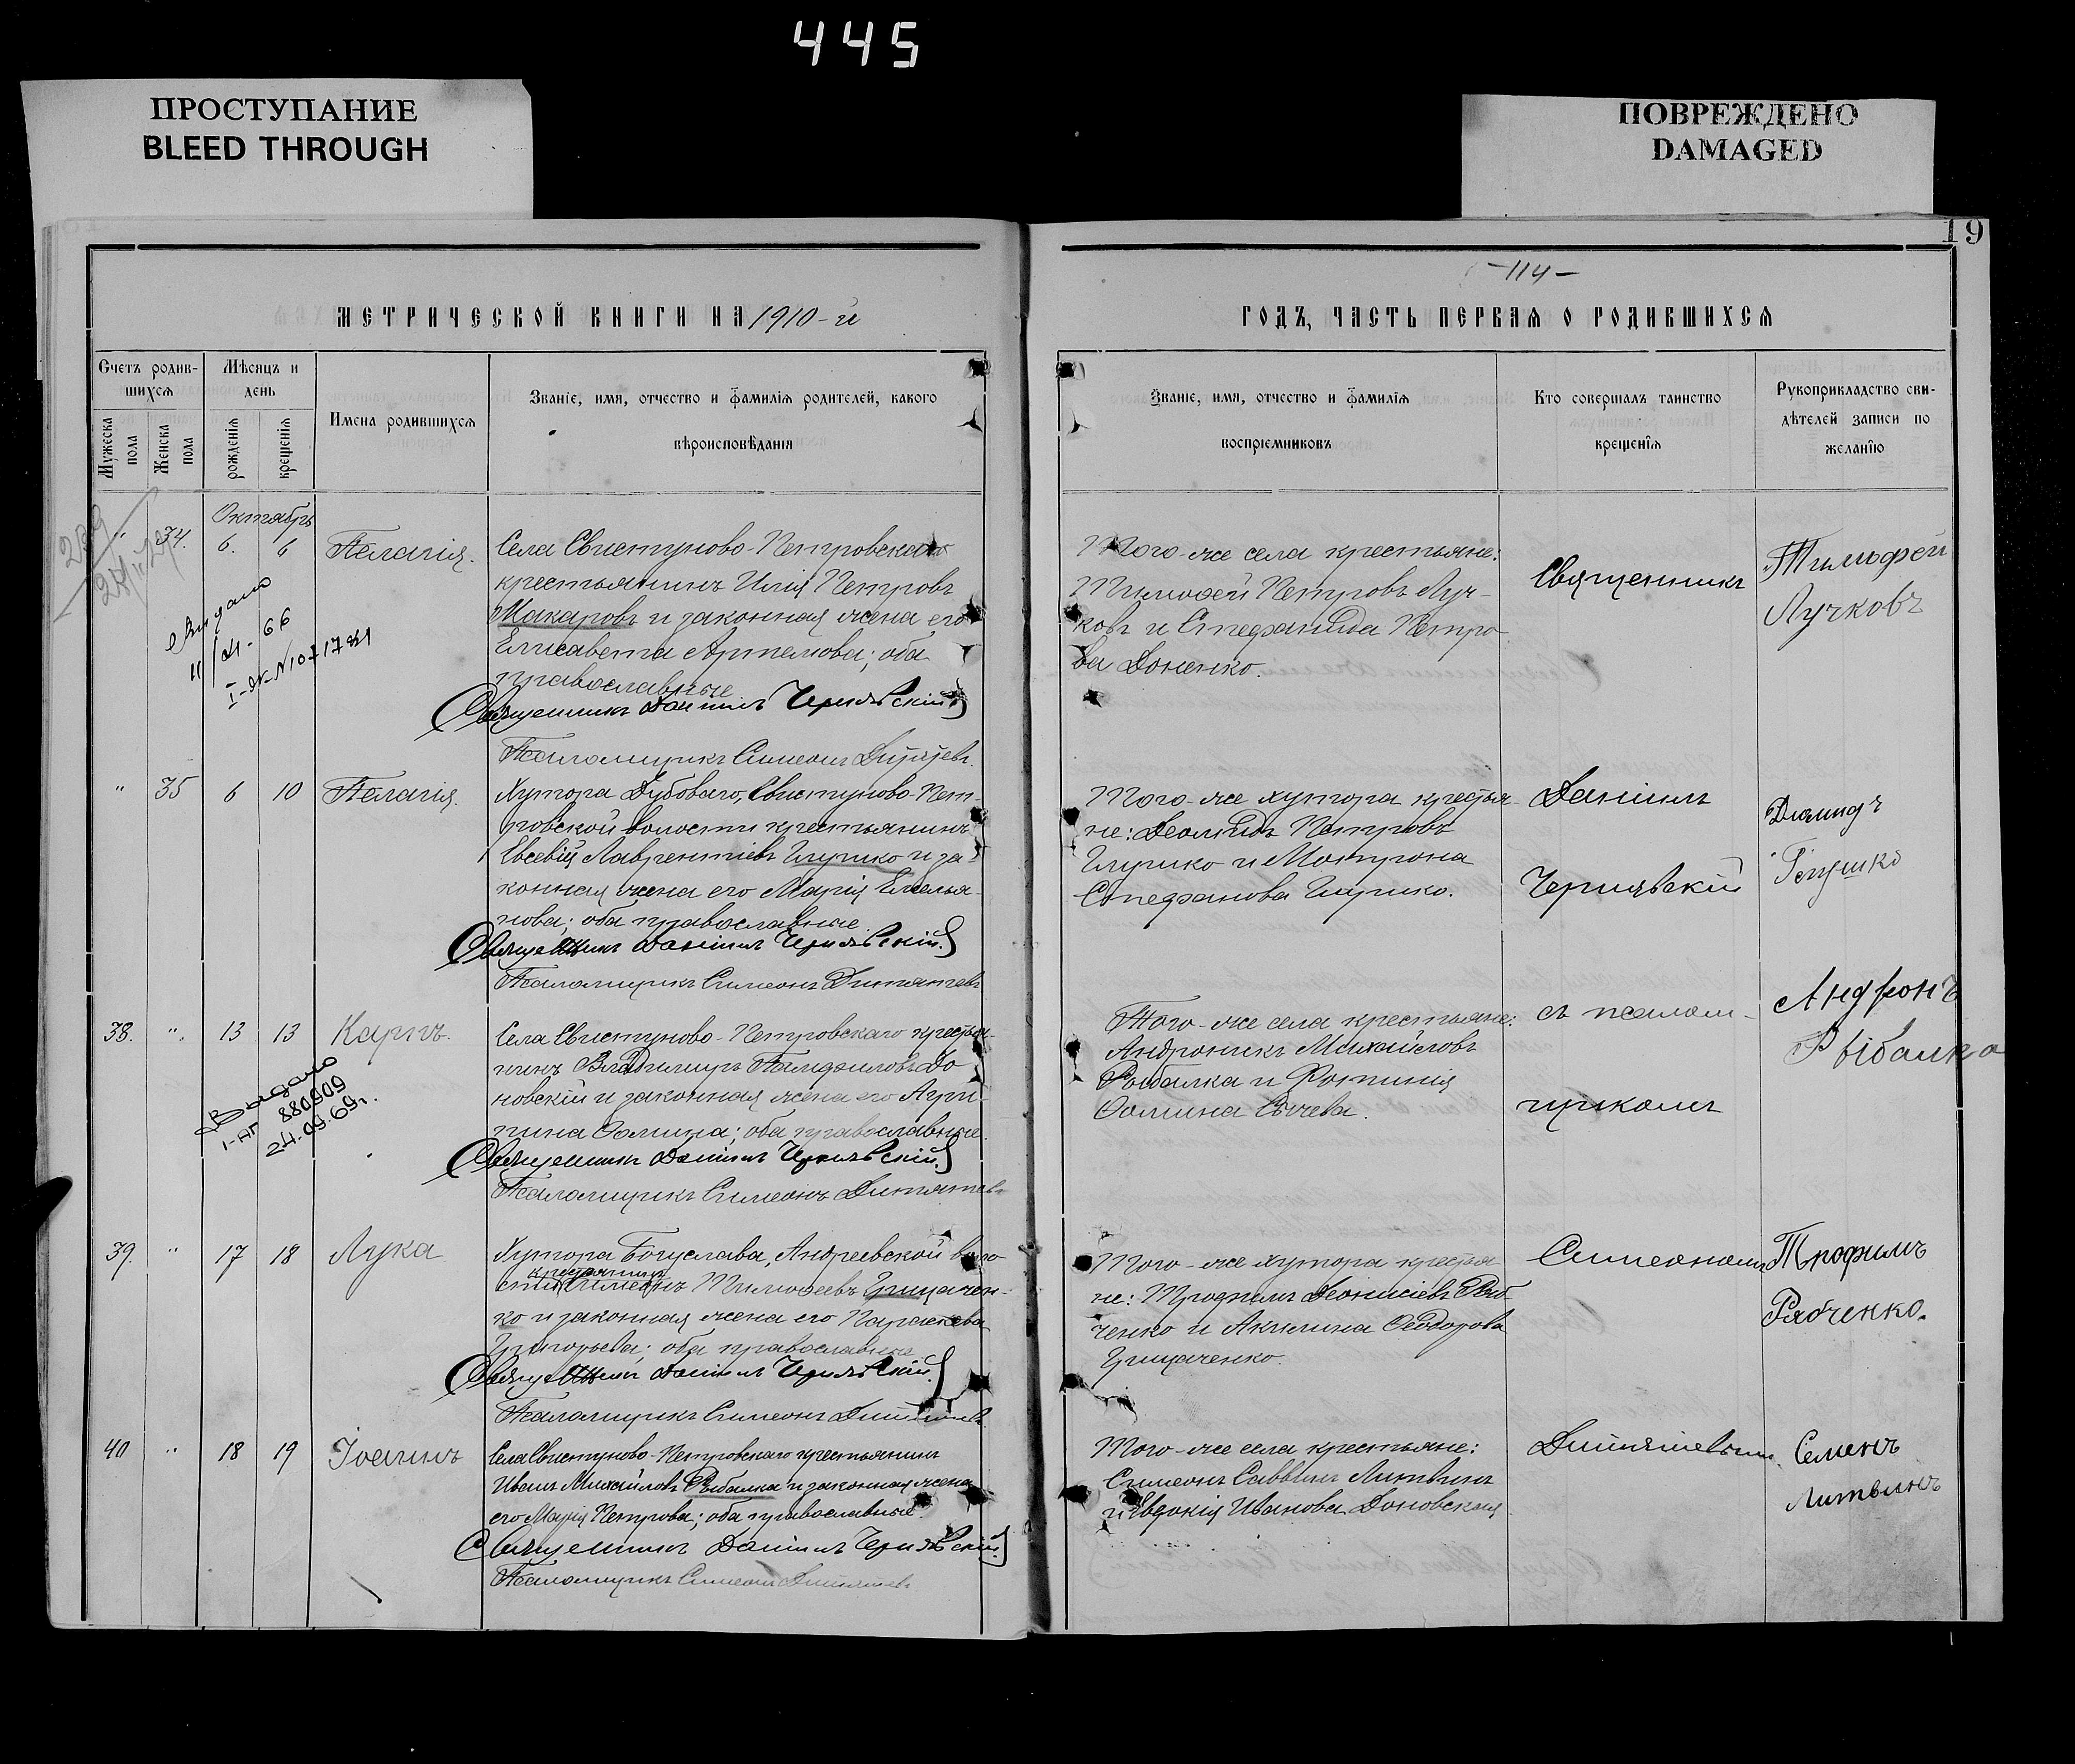 445
ПРОСТУПАНИЕ
BLEED THROUGH
ПОВРЕЖДЕНО
DAMAGED
19
-114-
МЕТРИЧЕСКОЙ КНИГИ НА 1910-й
ГОДЪ, ЧАСТЬ ПЕРВАЯ О РОДИВШИХСЯ
Счетъ родив-
шихся
Мужеска пола
Женска пола
Мѣсяцъ и
день
рожденія
крещенія
Имена родившихся
Званіе, имя, отчество и фамилія родителей, какого
вѣроисповѣданія
Званіе, имя, отчество и фамилія
воспріемниковъ
Кто совершалъ таинство
крещенія
Рукоприкладство сви-
дѣтелей записи по
желанію
Октябрь
" 34. 6. 6 Пелагія.
Села Свистуново-Петровскаго
крестьянинъ Илія Петровъ
Макаровъ и законная жена его
Елисавета Артемова; оба
православные
Священникъ Даніилъ Чернявскій
Псаломщикъ Симеонъ
Того-же села крестьяне:
Тимофей Петровъ Луч-
ковъ и Стефанида Петро
ва Доненко.
Священникъ
Тимофей
Лучковъ
" 35 6 10 Пелагія.
Хутора Дубоваго, Свистуново-Пет-
ровской волости крестьянинъ
Евсевій Лаврентіевъ Глушко и за-
конная жена его Марія Емелья-
нова; оба православные.
Священникъ Даніилъ Чернявскій.
Псаломщикъ Симеонъ Дитятевъ
Того-же хутора крестья-
не: Деомидъ Петровъ
Глушко и Матрона
Стефанова Глушко.
Даніилъ
Чернявскій
Диомидъ
Глушко
38. " 13 13 Карпъ.
Выдано
I-АП 880909
24.09.69г.
Села Свистуново-Петровскаго крестья-
нинъ Владимиръ Памфиловъ До
новскій и законная жена его Агрип-
пина Фомина; оба православные.
Священникъ Даніилъ Чернявскій.
Псаломщикъ Симеонъ Дитятевъ
Того-же села крестьяне:
Андроникъ Михайловъ
Рыбалка и Фотинія
Фомина Сычева.
съ псалом-
щикомъ
Андронъ
Рыбалка
39. " 17 18 Лука
Хутора Богуслава, Андреевской воло
сти крестьянинъ Симеонъ Тимофеевъ Грицачен-
ко и законная жена его Параскева
Григорьева; оба православные
Священникъ Даніилъ Чернявскій.
Псаломщикъ Симеонъ
Того-же хутора крестья
не: Трофимъ Деонисіевъ Ряб-
ченко и Акилина Феодорова
Грицаченко.
Симеономъ
Трофимъ
Рябченко.
40 " 18 19 Іоаннъ
Села Свистуново-Петровскаго крестьянинъ
Иванъ Михайловъ Рыбалка и законная жена
его Марія Петрова; оба православные.
Священникъ Даніилъ Чернявскій
Псаломщикъ Симеонъ Дитятевъ
Того-же села крестьяне:
Симеонъ Саввинъ Литвинъ
и Евдокія Иванова Доновская
Дитятевымъ.
Семенъ
Литвинъ